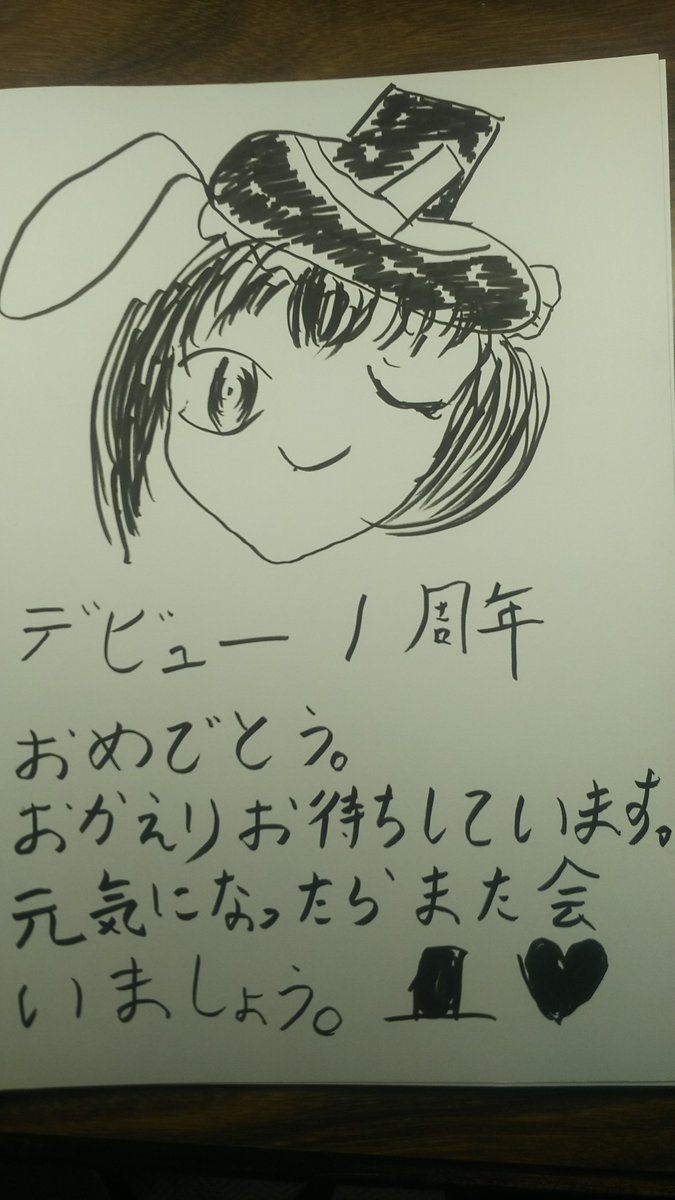 デビュー1周年
おめでとう。
おかえりお待ちしています。
元気になったらまた会
いましょう。